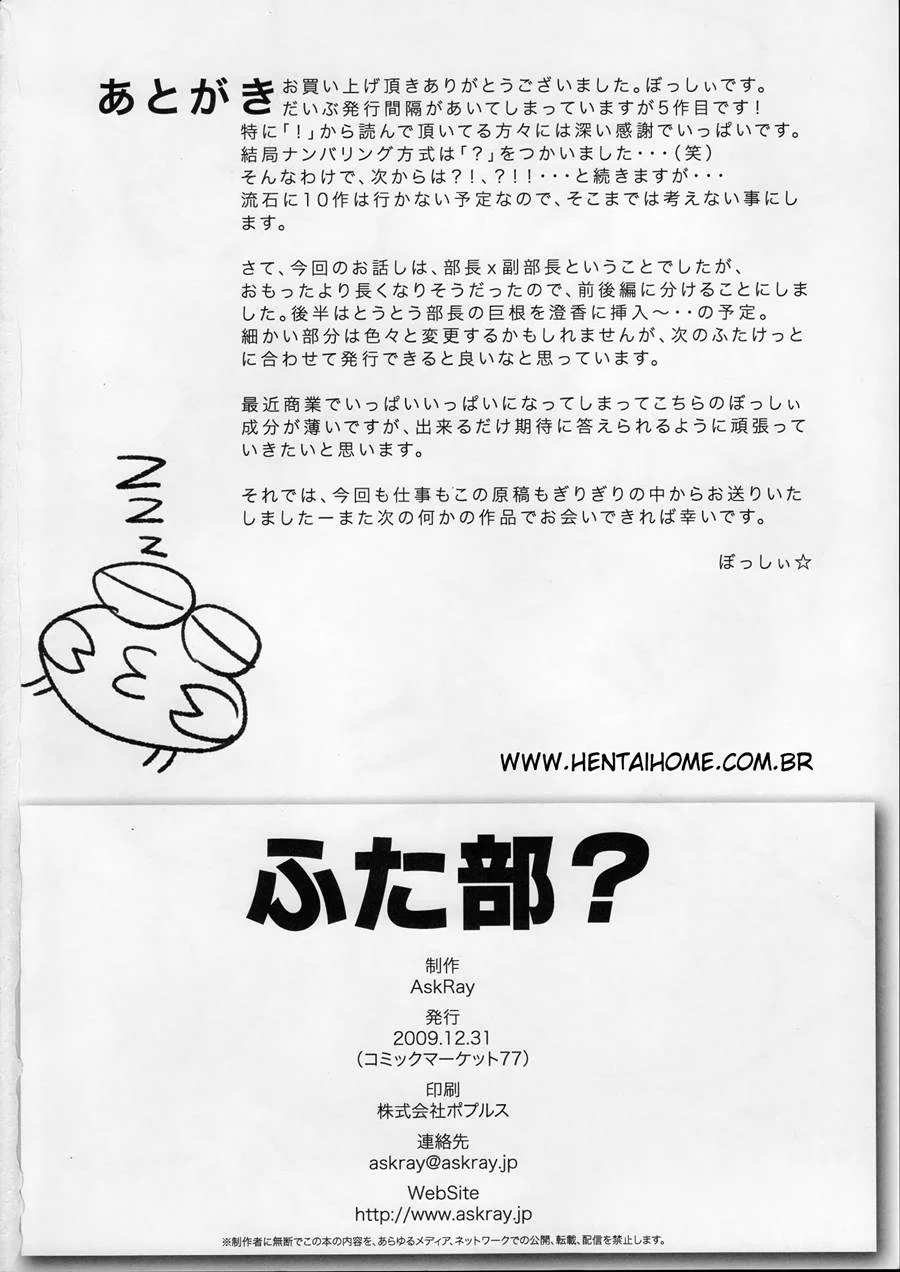 あとがき
お買い上げ頂きありがとうございました。ぼっしぃです。
だいぶ発行間隔があいてしまっていますが5作目です！
特に「！」から読んで頂いてる方々には深い感謝でいっぱいです。
結局ナンバリング方式は「？」をつかいました・・・（笑）
そんなわけで、次からは？！、？！！・・・と続きますが・・・
流石に10作は行かない予定なので、そこまでは考えない事にし
ます。
さて、今回のお話しは、部長x副部長ということでしたが、
おもったより長くなりそうだったので、前後編に分けることにしま
した。後半はとうとう部長の巨根を澄香に挿入～・・の予定。
細かい部分は色々と変更するかもしれませんが、次のふたけっと
に合わせて発行できると良いなと思っています。
最近商業でいっぱいいっぱいになってしまってこちらのぼっしぃ
成分が薄いですが、出来るだけ期待に答えられるように頑張って
いきたいと思います。
それでは、今回も仕事もこの原稿もぎりぎりの中からお送りいた
しましたーまた次の何かの作品でお会いできれば幸いです。
ぼっしぃ☆
Z
Z
Z
WWW.HENTAIHOME.COM.BR
ふた部？
制作
AskRay
発行
2009.12.31
（コミックマーケット77）
印刷
株式会社ポプルス
連絡先
askray@askray.jp
WebSite
http://www.askray.jp
※制作者に無断でこの本の内容を、あらゆるメディア、ネットワークでの公開、転載、配信を禁止します。